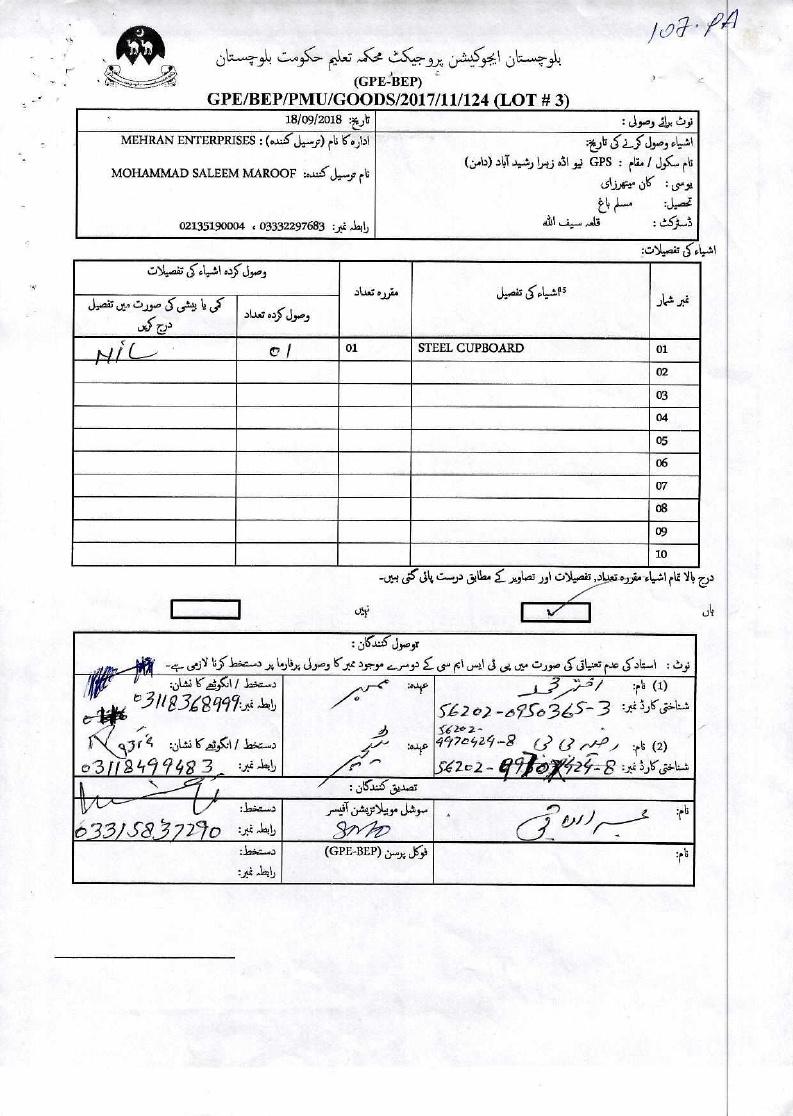 107-PA
بلوچستان ایجوکیشن پروجیکٹ محکمہ تعلیم حکومت بلوچستان
(GPE-BEP)
GPE/BEP/PMU/GOODS/2017/11/124 (LOT # 3)
نوٹ برائے وصولی :
تاریخ: 18/09/2018
اشیاء وصول کرنے کی تاریخ:
ادارہ کا نام (ترسیل کنندہ) : MEHRAN ENTERPRISES
نام سکول / مقام : GPS نیو اڈہ زہرا رشید آباد (دامن)
نام ترسیل کنندہ: MOHAMMAD SALEEM MAROOF
یوسی : کان مہترزئی
تحصیل: مسلم باغ
ڈسٹرکٹ : قلعہ سیف اللہ
رابطہ نمبر: 03332297683 ، 02135190004
اشیاء کی تفصیلات:
نمبر شمار
اشیاء کی تفصیل
مقررہ تعداد
وصول کردہ اشیاء کی تفصیلات
وصول کردہ تعداد
کمی یا بیشی کی صورت میں تفصیل درج کریں
01 STEEL CUPBOARD 01 01 NIL
02
03
04
05
06
07
08
09
10
درج بالا تمام اشیاء مقررہ تعداد, تفصیلات اور تصاویر کے مطابق درست پائی گئی ہیں۔
ہاں ✓ نہیں
توصول کنندگان :
نوٹ : استاد کی عدم تعیناتی کی صورت میں پی ٹی ایس ایم سی کے دوسرے موجود ممبر کا وصولی پرفارما پر دستخط کرنا لازمی ہے۔
(1) نام: اختر محمد
عہدہ: ممبر
دستخط / انگوٹھے کا نشان:
شناختی کارڈ نمبر: 56202-0950365-3
رابطہ نمبر: 03118368999
(2) نام:
56202-
9970429-8
عہدہ:
دستخط / انگوٹھے کا نشان:
شناختی کارڈ نمبر: 56202-
رابطہ نمبر: 03118499483
تصدیق کنندگان :
نام:
سوشل موبیلائزیشن آفیسر
SMO
دستخط:
رابطہ نمبر: 03315837290
نام:
فوکل پرسن (GPE-BEP)
دستخط:
رابطہ نمبر: